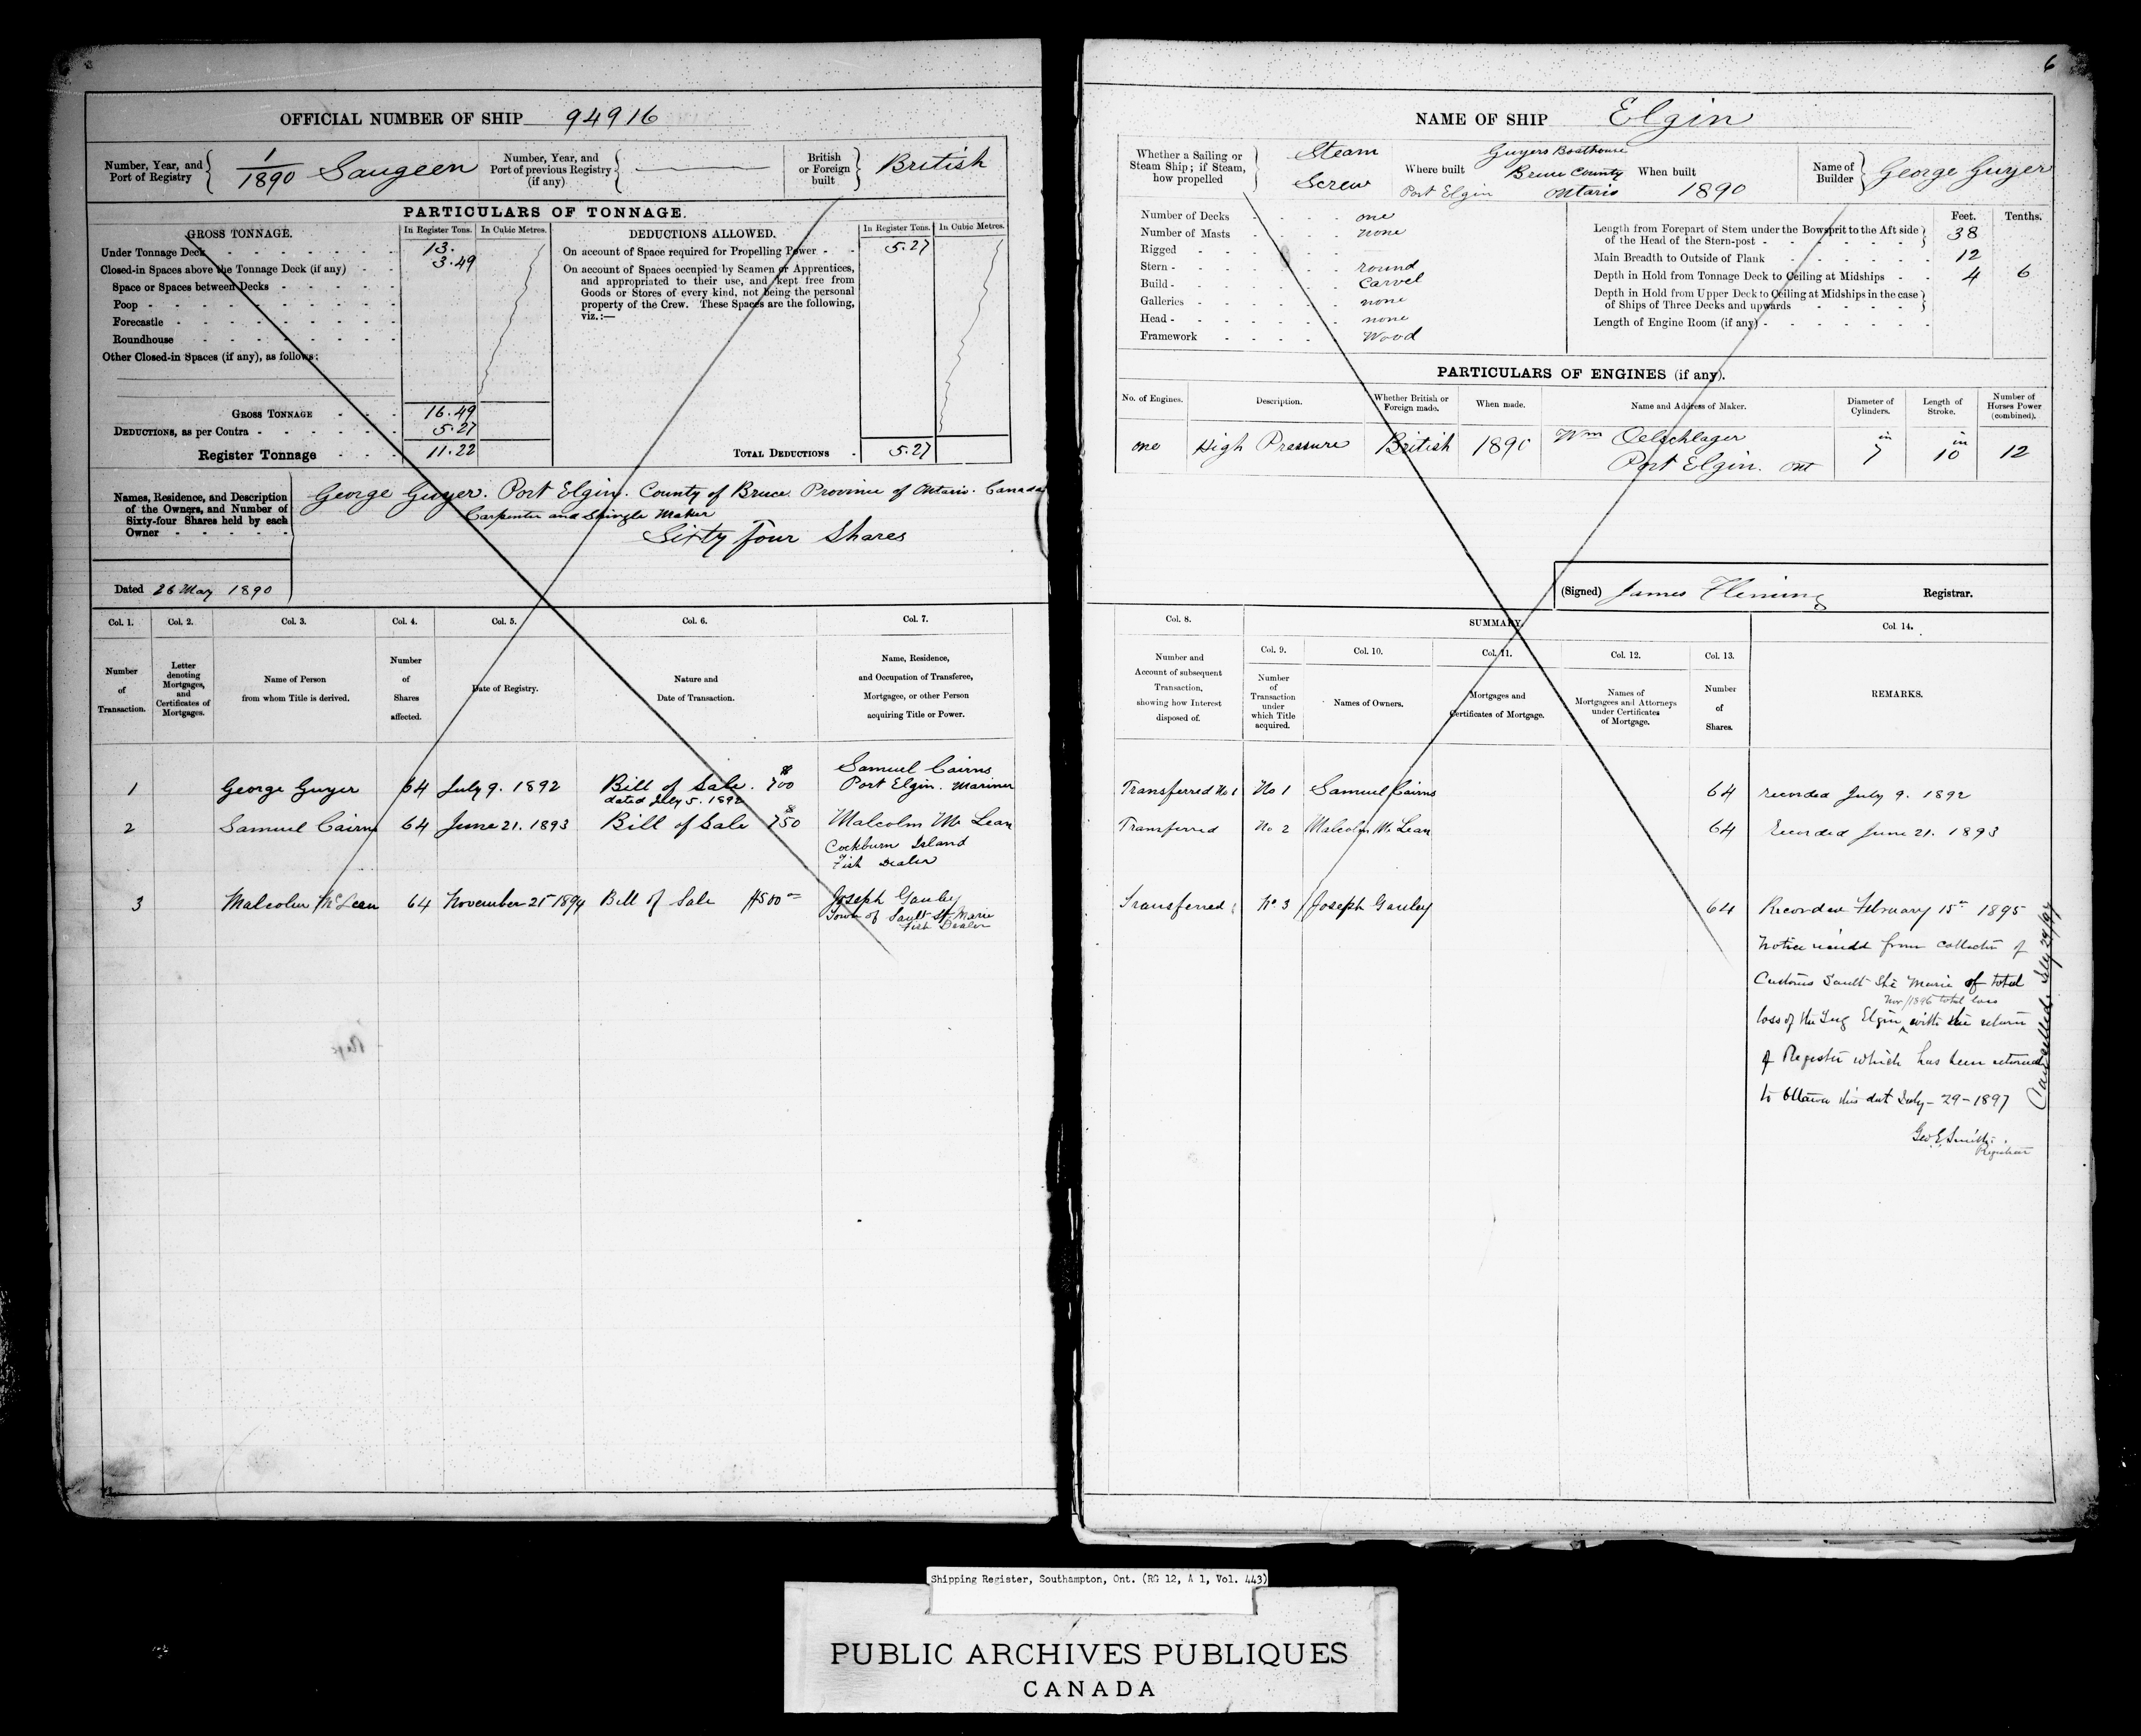 OFFICIAL NUMBER OF SHIP 94916
Number, Year, and Port of Registry 1/1890 Saugeen
Number, Year, and Port of previous Registry (if any)
British or Foreign built British
PARTICULARS OF TONNAGE.
GROSS TONNAGE. In Register Tons. In Cubic Metres.
Under Tonnage Deck 13.
Closed-in Spaces above the Tonnage Deck (if any) 3.49
Space or Spaces between Decks
Poop
Forecastle
Roundhouse
Other Closed-in Spaces (if any), as follows:
GROSS TONNAGE 16.49
DEDUCTIONS, as per Contra 5.27
Register Tonnage 11.22
DEDUCTIONS ALLOWED. In Register Tons. In Cubic Metres.
On account of Space required for Propelling Power 5.27
On account of Spaces occupied by Seamen or Apprentices,
and appropriated to their use, and kept free from
Goods or Stores of every kind, not being the personal
property of the Crew. These Spaces are the following,
viz.:—
TOTAL DEDUCTIONS 5.27
Names, Residence, and Description
of the Owners, and Number of
Sixty-four Shares held by each
Owner
George Guyer. Port Elgin. County of Bruce. Province of Ontario. Canada
Carpenter and Shingle Maker
Sixty four Shares
Dated 26 May 1890
Col. 1. Col. 2. Col. 3. Col. 4. Col. 5. Col. 6. Col. 7.
Number of Transaction.
Letter denoting Mortgages, and Certificates of Mortgages.
Name of Person from whom Title is derived.
Number of Shares affected.
Date of Registry.
Nature and Date of Transaction.
Name, Residence, and Occupation of Transferee, Mortgagee, or other Person acquiring Title or Power.
1 George Guyer 64 July 9. 1892 Bill of Sale. $700
dated July 5. 1892
Samuel Cairns
Port Elgin. Mariner
2 Samuel Cairns 64 June 21. 1893 Bill of Sale $750
Malcolm Mc Lean
Cockburn Island
Fish Dealer
3 Malcolm McLean 64 November 21st 1894 Bill of Sale $500
Joseph Ganley
Town of Sault St. Marie
Fish Dealer
6
NAME OF SHIP Elgin
Whether a Sailing or Steam Ship; if Steam, how propelled
Steam
Screw
Where built
Guyers Boathouse
Bruce County
Port Elgin Ontario
When built
1890
Name of Builder George Guyer
Number of Decks one
Number of Masts none
Rigged
Stern round
Build Carvel
Galleries none
Head none
Framework Wood
Feet. Tenths.
Length from Forepart of Stem under the Bowsprit to the Aft side of the Head of the Stern-post 38
Main Breadth to Outside of Plank 12
Depth in Hold from Tonnage Deck to Ceiling at Midships 4 6
Depth in Hold from Upper Deck to Ceiling at Midships in the case of Ships of Three Decks and upwards
Length of Engine Room (if any)
PARTICULARS OF ENGINES (if any).
No. of Engines. Description. Whether British or Foreign made. When made. Name and Address of Maker. Diameter of Cylinders. Length of Stroke. Number of Horses Power (combined).
one High Pressure British 1890 Wm Oelschlager in 7 in 10 12
Port Elgin. Ont
(Signed) James Fleming Registrar.
Col. 8. SUMMARY. Col. 14.
Col. 9. Col. 10. Col. 11. Col. 12. Col. 13.
Number and Account of subsequent Transaction, showing how Interest disposed of.
Number of Transaction under which Title acquired.
Names of Owners.
Mortgages and Certificates of Mortgage.
Names of Mortgagees and Attorneys under Certificates of Mortgage.
Number of Shares.
REMARKS.
Transferred No 1 No 1 Samuel Cairns 64 recorded July 9. 1892
Transferred No 2 Malcolm Mc Lean 64 Recorded June 21. 1893
Transferred No 3 Joseph Ganley 64 Recorded February 15th 1895
Notice from Collector of
Customs Sault Ste Marie of total
Nov/1896 total loss
loss of the Tug Elgin with the return
of Register which has been returned
to Ottawa this date July-29-1897
Geo. E. Smith
Registrar
Cancelled July 29/97
Shipping Register, Southampton, Ont. (RG 12, A 1, Vol. 443)
PUBLIC ARCHIVES PUBLIQUES
CANADA